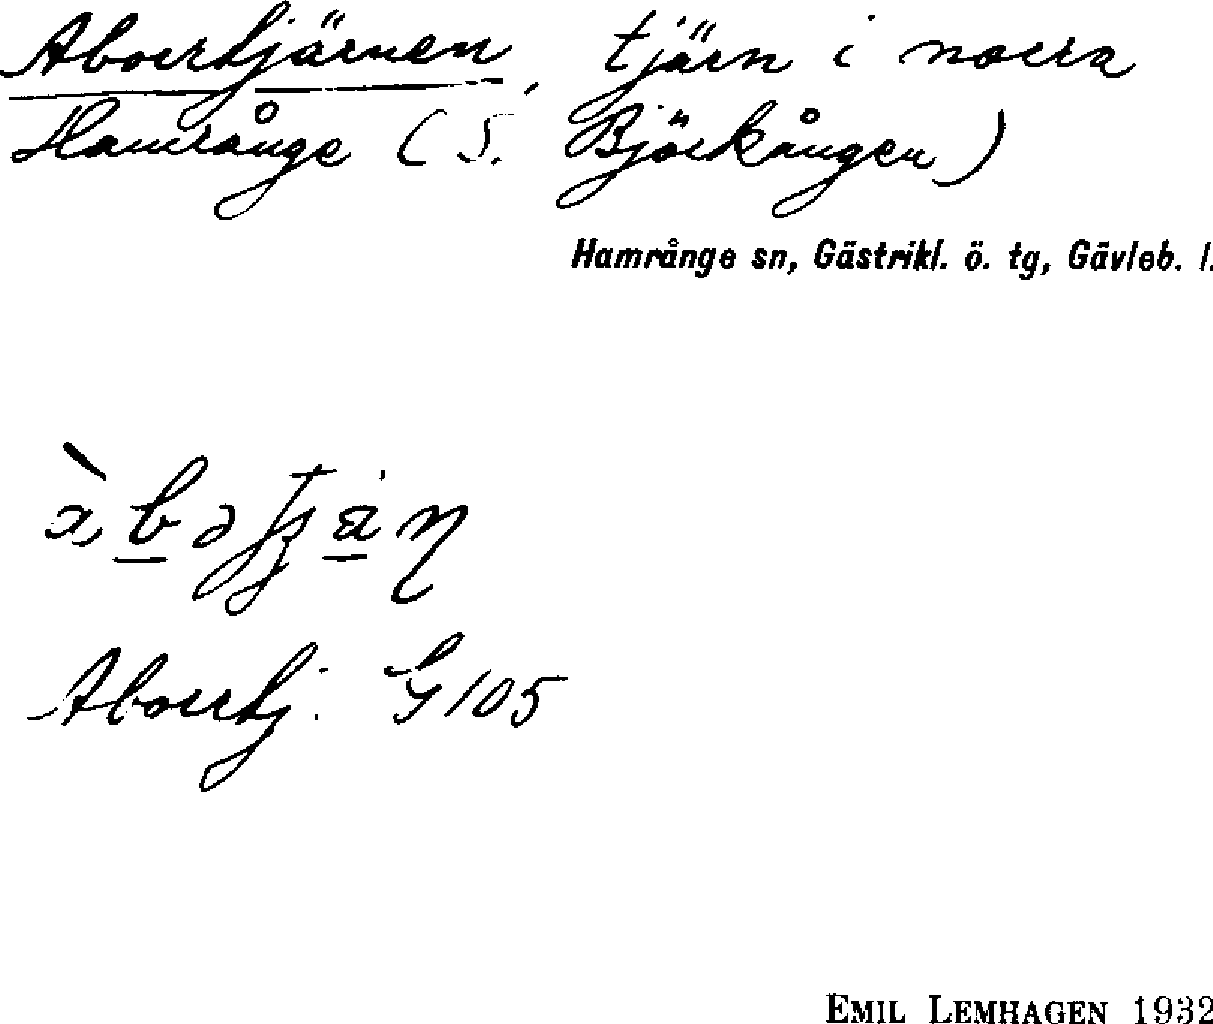 Aborrtjärnen, tjärn i norra
Hamrånge (S. Björkängen)
Hamrånge sn, Gästrikl. ö. tg, Gävleb. l.
Aborrtj. G105
EMIL LEMHAGEN 1932